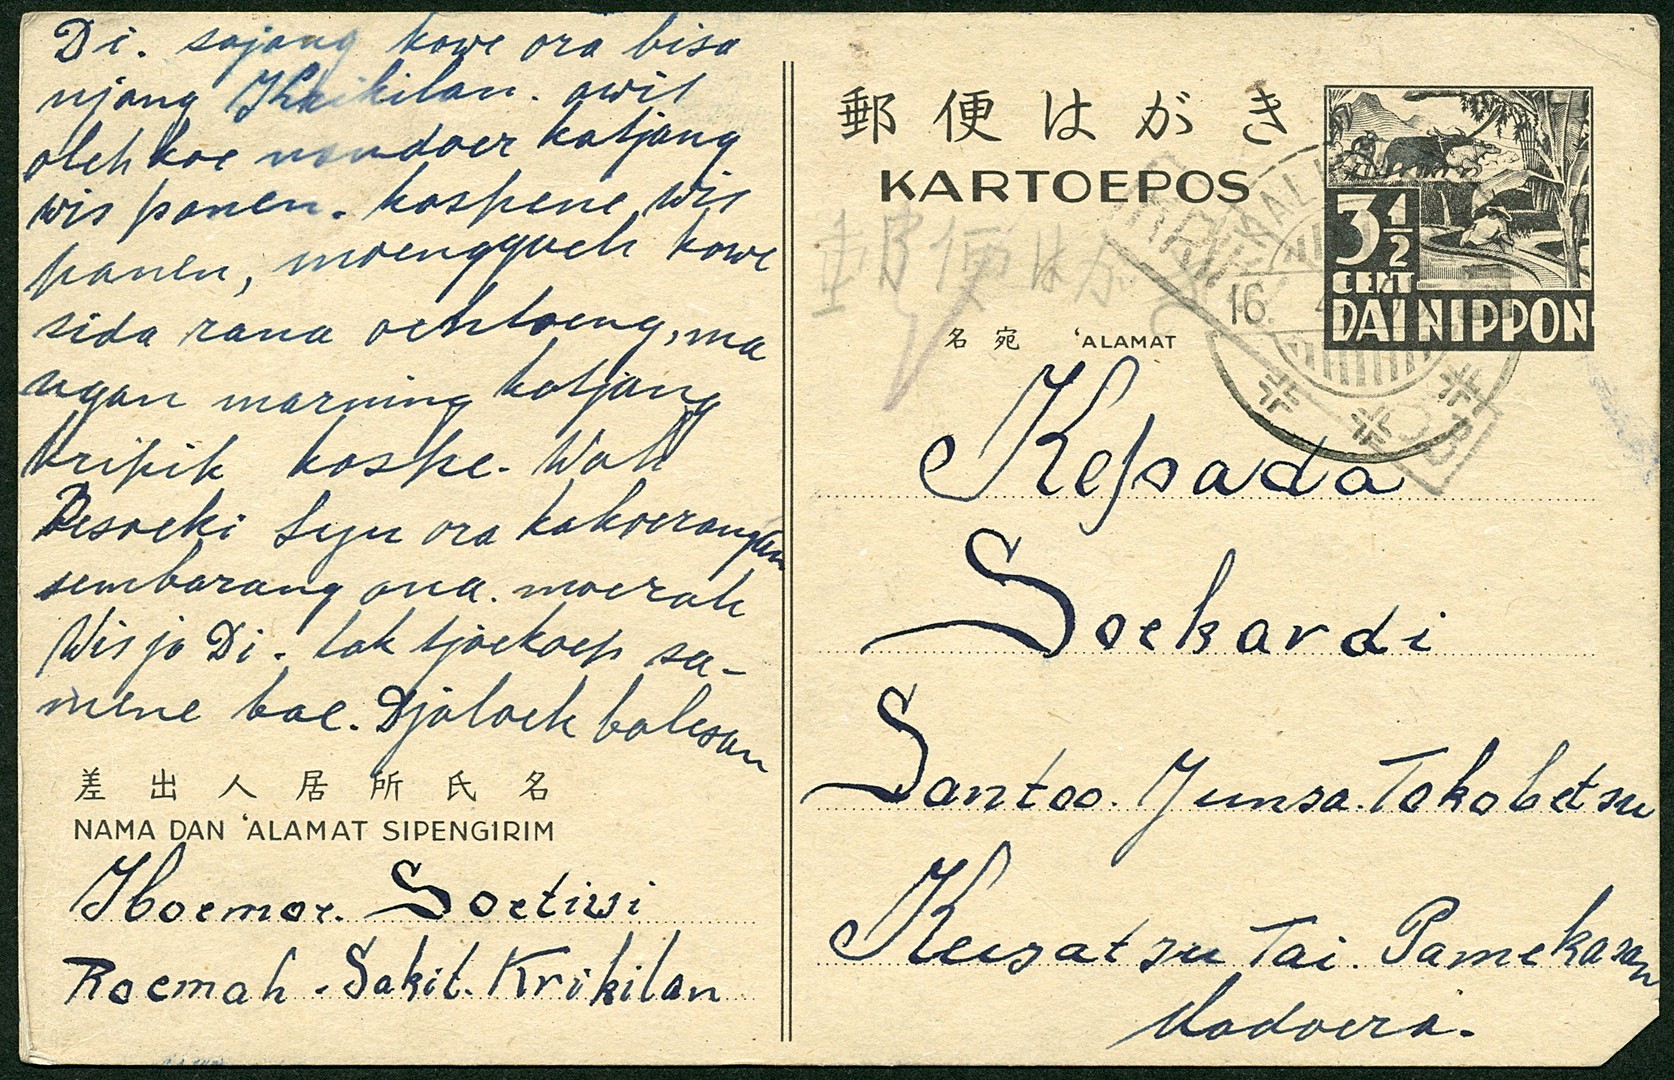 Di. sajang kowe ora bisa
njang Khrikilan. awit
oleh koe nandoer katjang
wis panen. kaspene wis
panen, moenggoeh kowe
sida rana oentoeng, ma
ngan marning katjang
kripik kaspe. Wah
Besoeki Syu ora kakoerangan
sembarang ana. moerah
Wis ja Di. tak tjoekoep sa-
mene bae. Djaloek balesan
差出人居所氏名
NAMA DAN 'ALAMAT SIPENGIRIM
Iboemoe. Soetiwi
Roemah. Sakit. Krikilan
郵便はがき
KARTOEPOS
郵便はがき
3½
CENT
DAI NIPPON
16.
名宛 'ALAMAT
Kepada
Soekardi
Santoo. Junsa. Tokobetsu
Keisatsu Tai. Pamekasan
Madoera.